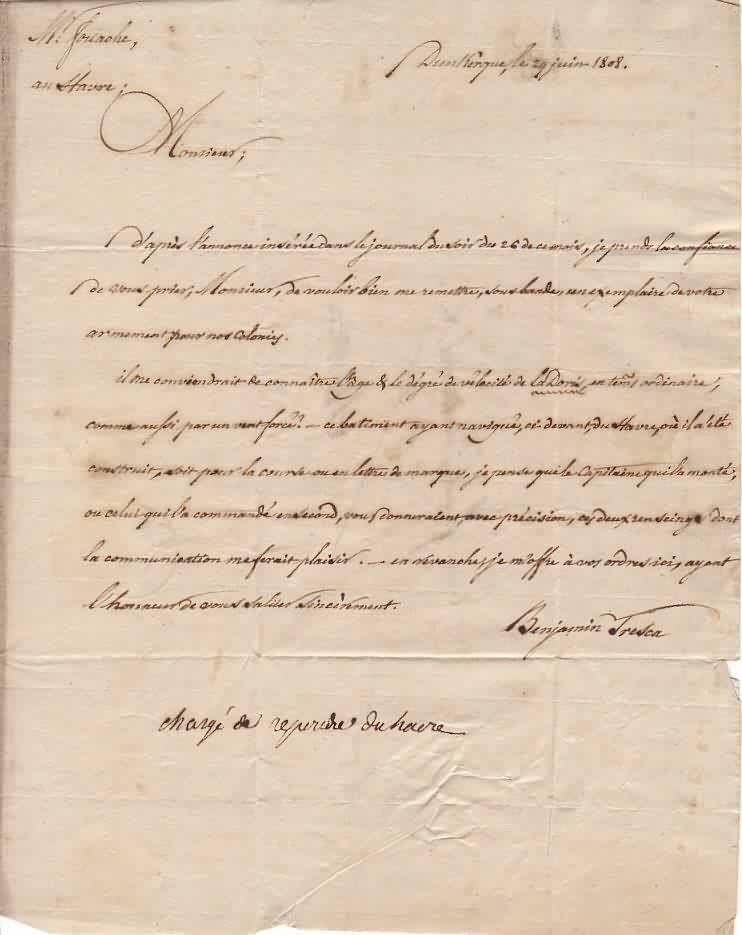 Mr. Foache,
au Havre;
Dunkerque, le 29 juin 1808.
Monsieur;
D'après l'annonce insérée dans le journal du soir du 26 de ce mois, je prends la confiance
de vous prier, Monsieur, de vouloir bien me remettre, sous bande, un exemplaire de votre
armement pour nos Colonies.
il me conviendrait de connaître l'âge & le dégré de vélocité de la Doris, en tems ordinaire;
comme aussi par un vent forcé? — ce batiment ayant navigué, ci-devant, du Havre, où il a été
construit, soit pour la course ou en lettre de marque, je pense que le Capitaine qui l'a monté,
ou celui qui l'a commandé en second, vous donneraient, avec précision, ces deux renseings dont
la communication me ferait plaisir. — en revanche, je m'offre à vos ordres ici, ayant
l'honneur de vous saluer sincèrement.
Benjamin Tresca
chargé de repondre du havre